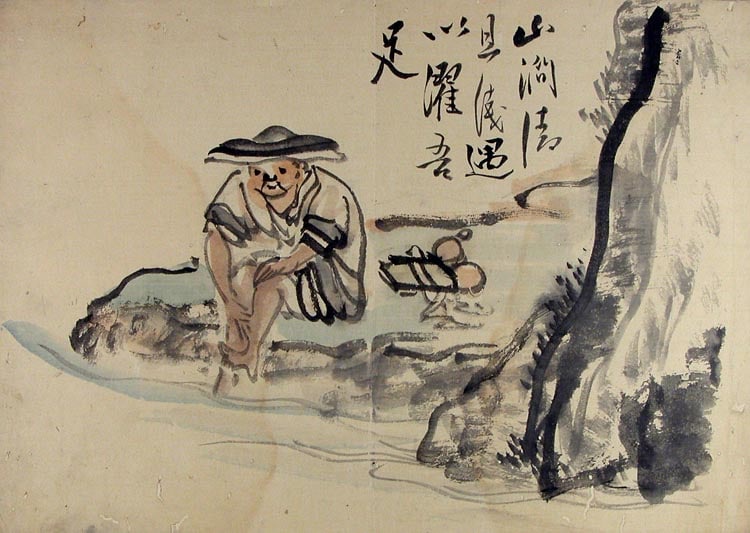 山澗清
且淺遇
以濯吾
足